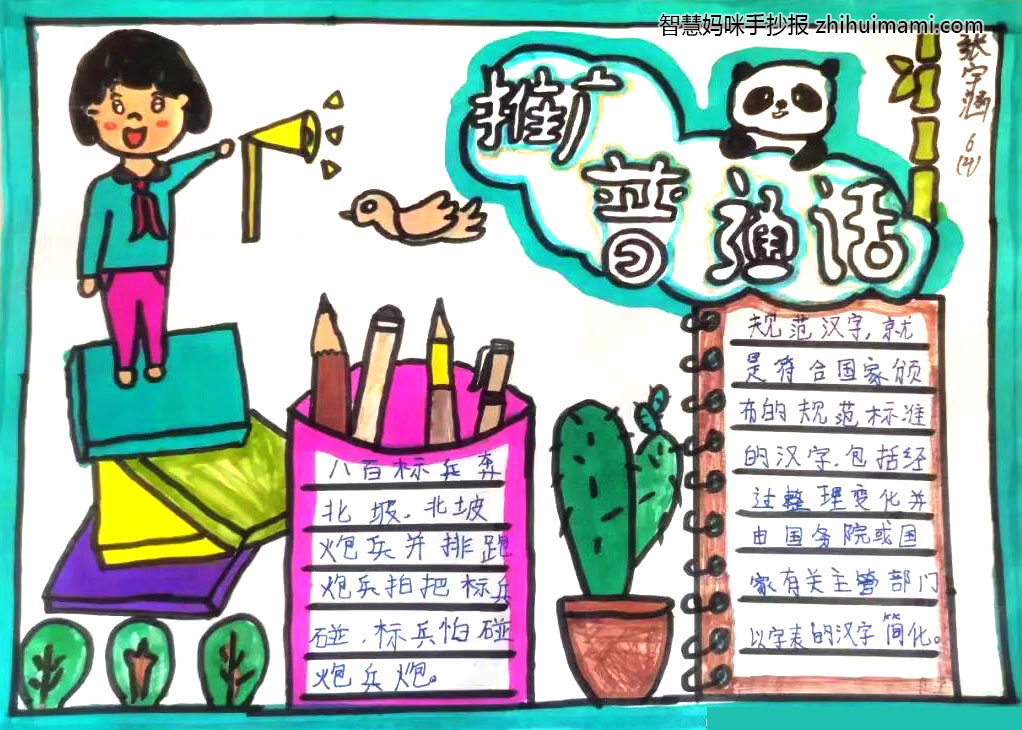 智慧妈咪手抄报 zhihuimami.com
张宇涵 6(4)
推广
普通话
规范汉字,就
是符合国家颁
布的规范标准
的汉字.包括经
过整理变化并
由国务院或国
家有关主管部门
以字表的汉字简化。
八百标兵奔
北坡.北坡
炮兵并排跑
炮兵拍把标兵
碰.标兵怕碰
炮兵炮。